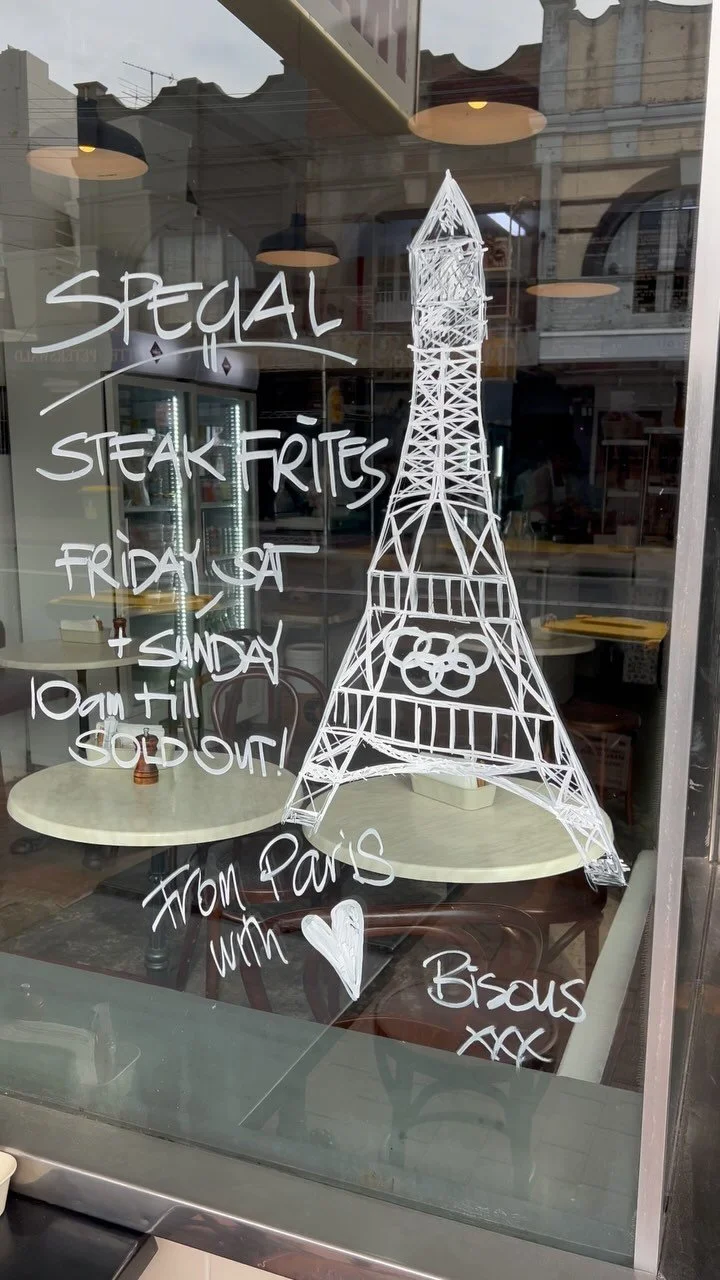 SPECIAL
STEAK FRITES
FRIDAY, SAT
+ SUNDAY
10am till
SOLD OUT!
From Paris
with
Bisous
xxx